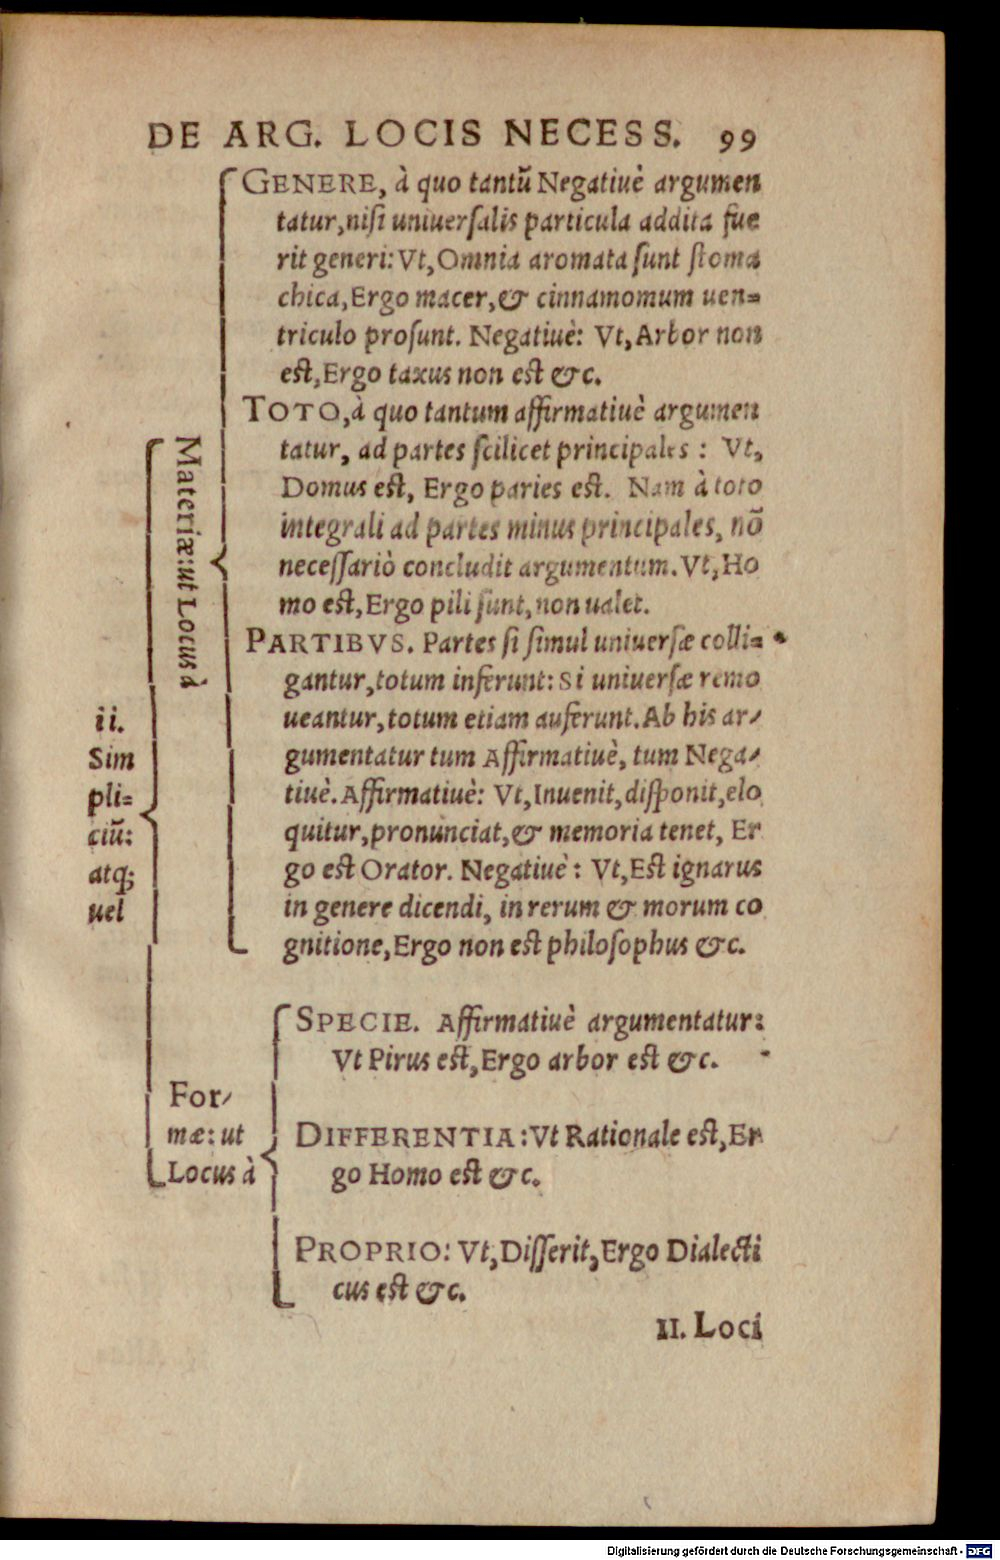 DE ARG. LOCIS NECESS. 99
ii.
Sim
pli=
ciũ:
atq;
uel
Materiæ: ut Locus à
GENERE, à quo tantũ Negatiuè argumen
tatur, nisi uniuersalis particula addita fue
rit generi: Vt, Omnia aromata sunt stoma
chica, Ergo macer, & cinnamomum uen=
triculo prosunt. Negatiuè: Vt, Arbor non
est, Ergo taxus non est &c.
TOTO, à quo tantum affirmatiuè argumen
tatur, ad partes scilicet principales: Vt,
Domus est, Ergo paries est. Nam à toto
integrali ad partes minus principales, nõ
necessariò concludit argumentum. Vt, Ho
mo est, Ergo pili sunt, non ualet.
PARTIBVS. Partes si simul uniuersæ colli=
gantur, totum inferunt: Si uniuersæ remo
ueantur, totum etiam auferunt. Ab his ar/
gumentatur tum Affirmatiuè, tum Nega/
tiuè. Affirmatiuè: Vt, Inuenit, disponit, elo
quitur, pronunciat, & memoria tenet, Er
go est Orator. Negatiuè: Vt, Est ignarus
in genere dicendi, in rerum & morum co
gnitione, Ergo non est philosophus &c.
For/
mæ: ut
Locus à
SPECIE. Affirmatiuè argumentatur:
Vt Pirus est, Ergo arbor est &c.
DIFFERENTIA: Vt Rationale est, Er
go Homo est &c.
PROPRIO: Vt, Disserit, Ergo Dialecti
cus est &c.
II. Loci
Digitalisierung gefördert durch die Deutsche Forschungsgemeinschaft - DFG